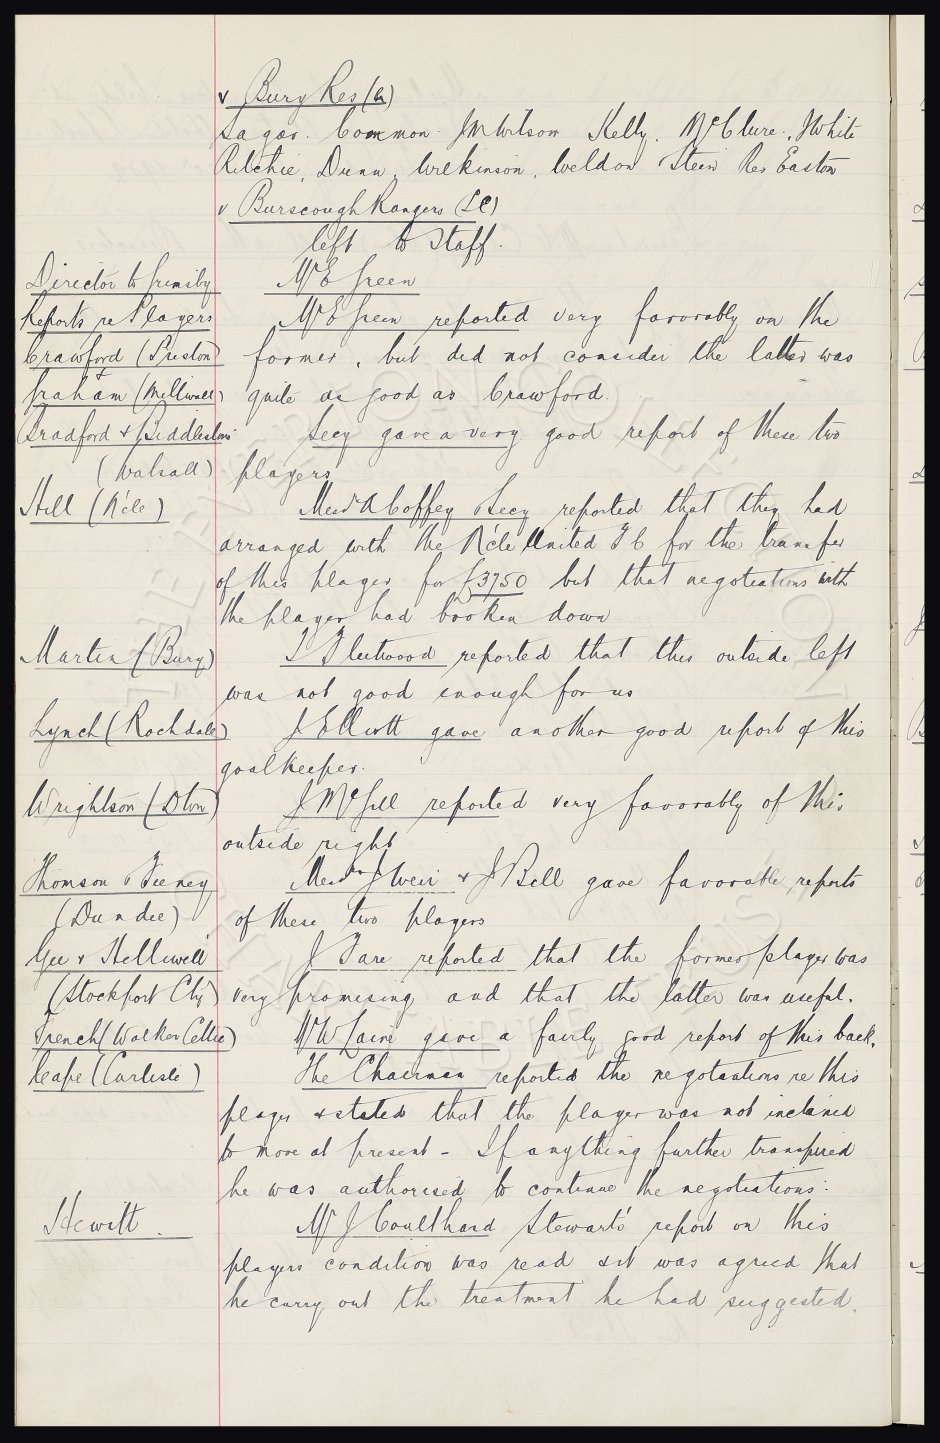 v Bury Res (a)
Sagar. Common. JM Wilson Kelly. McClure. J White
Ritchie, Dunn, Wilkinson, Weldon Stein Res Easton
v Burscough Rangers (LC)
left to Staff.
Director to Grimsby
Mr E Green
Reports re Players
Mr E Green reported very favorably on the
Crawford (Preston)
former, but did not consider the latter was
Graham (Millwall)
quite as good as Crawford.
Bradford & Biddlestone
Secy gave a very good report of these two
(Walsall)
players
Hill (N'cle)
Messrs A Coffey Secy reported that they had
arranged with the N'cle United FC for the transfer
of this player for £3750 but that negotiations with
the player had broken down
Martin (Bury)
T Fleetwood reported that this outside left
was not good enough for us
Lynch (Rochdale)
J Elliott gave another good report of this
goalkeeper.
Wrightson (Dton)
J McGill reported very favorably of this
outside right
Thomson & Feeney
Messrs J Weir & J Bell gave favorable reports
(Dundee)
of these two players
Gee & Helliwell
J Fare reported that the former player was
(Stockport Cty)
very promising and that the latter was useful.
French (Walker Celtic)
W Laine gave a fairly good report of this back.
Cape (Carlisle)
The Chairman reported the negotiations re this
player & stated that the player was not inclined
to move at present - If anything further transpired
he was authorised to continue the negotiations.
Hewitt.
Mr J Coulthard Stewart's report on this
players condition was read & it was agreed that
he carry out the treatment he had suggested.